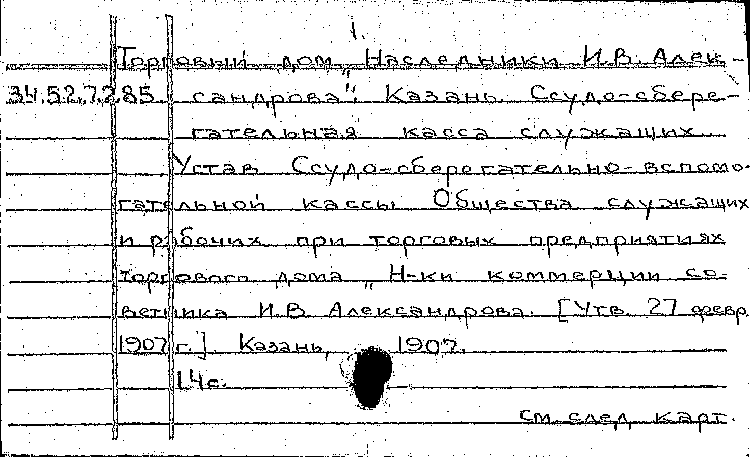 1.
Торговый дом „Наследники И.В. Алек-
34.52.7.285 сандрова". Казань. Ссудо-сбере-
гательная касса служащих.
Устав Ссудо-сберегательно-вспомо-
гательной кассы Общества служащих
и рабочих при торговых предприятиях
торгового дома „Н-ки коммерции со-
ветника И.В. Александрова. [Утв. 27 февр.
1907 г.]. Казань, 1907.
14с.
см. след. карт.